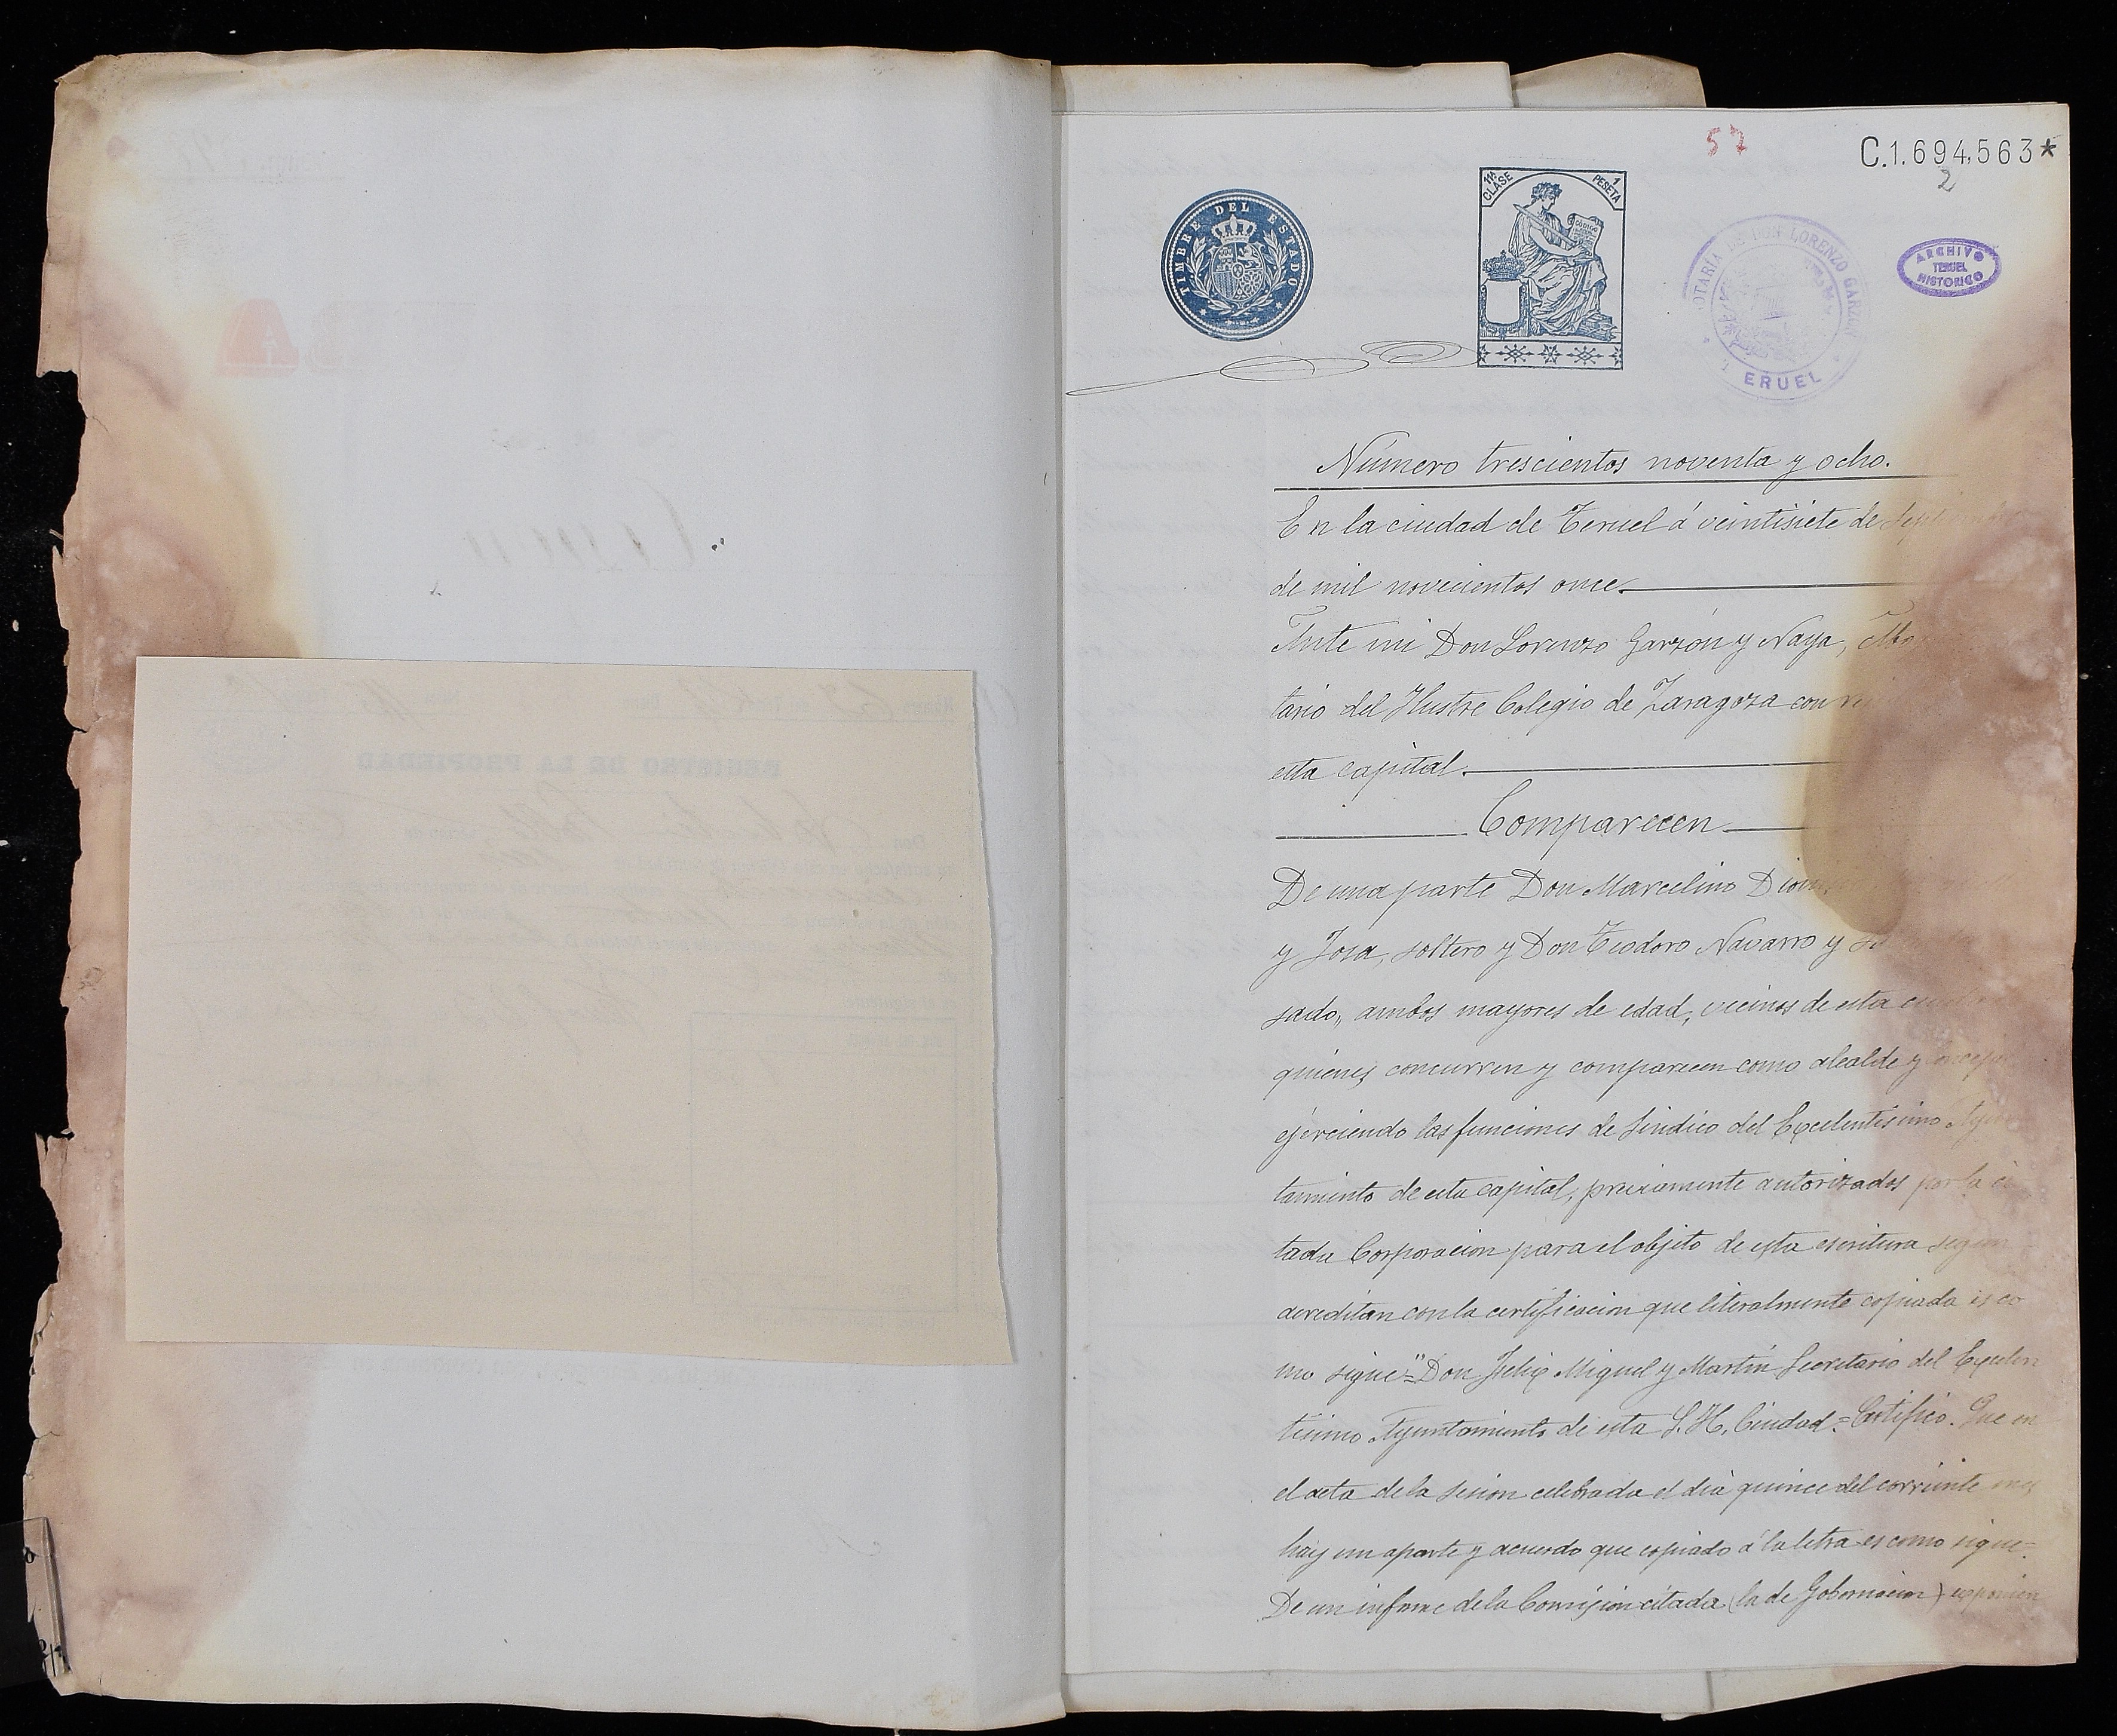 57
C.1.694,563*
2
TIMBRE DEL ESTADO
11ª CLASE
1 PESETA
NOTARÍA DE DON LORENZO GARZON
TERUEL
ARCHIVO
TERUEL
HISTORICO
Número trescientos noventa y ocho.
En la ciudad de Teruel á veintisiete de
de mil novecientos once.
Ante mi Don Lorenzo Garzón y Naya,
tario del Ilustre Colegio de Zaragoza con
esta capital.
Comparecen
De una parte Don Marcelino
y Josa, soltero y Don Teodoro Navarro y
sado, ambos mayores de edad, vecinos de esta
quienes concurren y comparecen como alcalde y
ejerciendo las funciones de Sindico del Excelentisimo Ayun
tamiento de esta capital, previamente autorizados por la ci
tada Corporacion para el objeto de esta escritura segun
acreditan con la certificacion que literalmente copiada es co
mo sigue "=Don Felix Miguel y Martín Secretario del Excelen
tisimo Ayuntamiento de esta S.H. Ciudad.=Certifico. Que en
el acta de la sesion celebrada el dia quince del corriente mes
hay un aparte y acuerdo que copiado á la letra es como sigue=
De un informe de la Comision citada (la de Gobernacion) exponien
REGISTRO DE LA PROPIEDAD